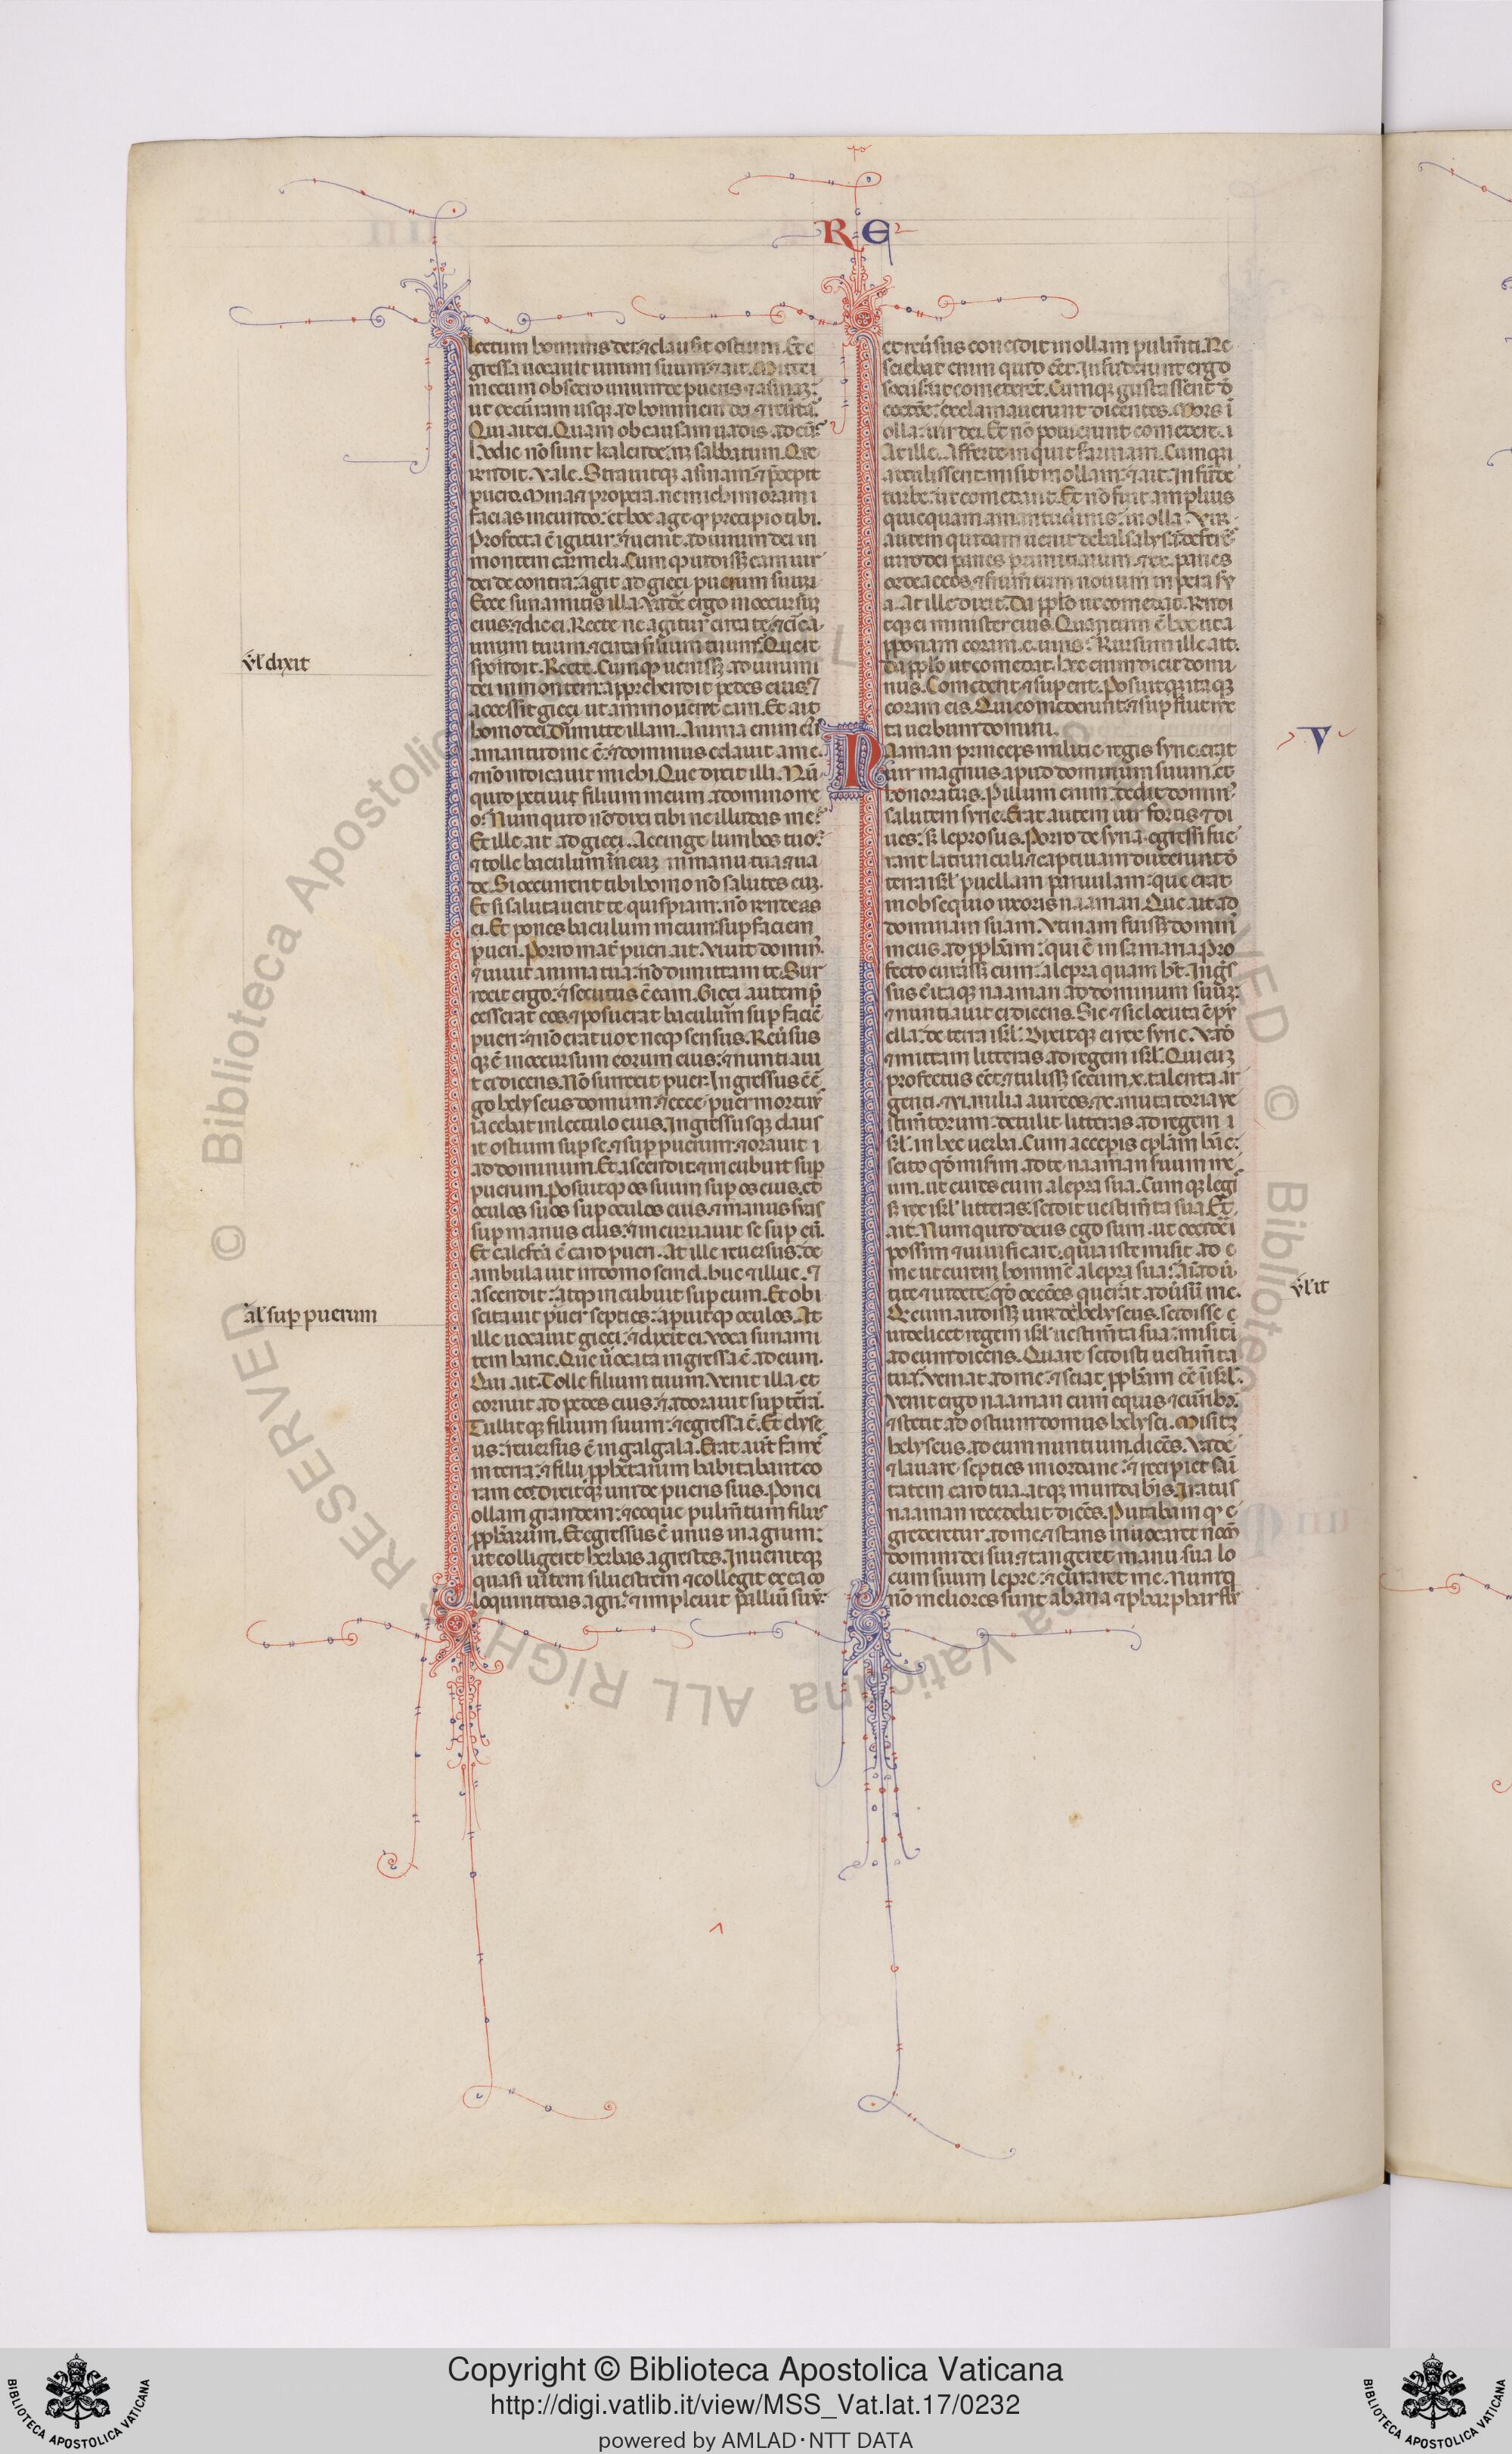 R E
lectum hominis dei. ⁊ clausit ostium. Et e
gressa uocauit uirum suum. ⁊ ait. Mitte
mecum obsecro unum de pueris ⁊ asinaꝫ:
ut excurram usqꝫ ad hominem dei. ⁊ reuertar.
Qui ait ei. Quam ob causam uadis ad eū?
Hodie nō sunt kalende: nꝫ sabbatum. Que
rendit. Vale. Strauitqꝫ asinam: ⁊ p̄cepit
puero. Mina ⁊ propera. ne michi moram
facias in eundo: et hoc age qd precipio tibi.
Profecta ē igitur: ⁊ uenit ad uirum dei in
montem carmeli. Cumqꝫ uidissꝫ eam uir
dei de contra: ait ad gieci puerum suum.
Ecce sunamitis illa. Vade ergo in occursuꝫ
eius: ⁊ dic ei. Recte ne agitur circa te. ⁊ circa
uirum tuum. ⁊ circa filium tuum? Que re
spondit. Recte. Cumqꝫ uenissꝫ ad uirum
dei in montem: apprehendit pedes eius. ⁊
accessit gieci ut ammoueret eam. Et ait
homo dei. Dimitte illam. Anima enim eiꝰ
in amaritudine ē. ⁊ dominus celauit a me.
⁊ nō indicauit michi. Que dixit illi. Nū
quid petiui filium meum a domino me
o: Numquid nō dixi tibi ne illudas me?
Et ille ait ad gieci. Accinge lumbos tuos:
⁊ tolle baculum meuꝫ in manu tua. ⁊ ua
de. Si occurrerit tibi homo nō salutes euꝫ.
Et si salutauerit te quispiam: nō rendeas
ei. Et pones baculum meum: sup faciem
pueri. Porro mat̄ pueri ait. Viuit dominꝰ
⁊ uiuit anima tua: nō dimittam te. Sur
rexit ergo: ⁊ secutus ē eam. Gieci autem p̄
cesserat eos. ⁊ posuerat baculum sup faciē
pueri: ⁊ nō erat uox neqꝫ sensus. Reuersus
qꝫ ē in occursum eorum eius: ⁊ nuntiaui
t ei dicens. Nō surrexit puer. Ingressus ē er
go helyseus domum: ⁊ ecce puer mortuꝰ
iacebat in lectulo eius. Ingressusqꝫ claus
it ostium sup se. ⁊ sup puerum: ⁊ orauit
ad dominum. Et ascendit: ⁊ incubuit sup
puerum. Posuitqꝫ os suum sup os eius. et
oculos suos sup oculos eius. ⁊ manus suas
sup manus eius: ⁊ incuruauit se sup eū.
Et calefcā ē caro pueri. At ille reuersus: de
ambulauit in domo semel. huc ⁊ illuc. ⁊
ascendit: atqꝫ incubuit sup eum. Et osci
scitauit puer septies: apuitqꝫ oculos. At
ille uocauit gieci: ⁊ dixit ei. Voca sunami
tem hanc. Que uocata ingressa ē ad eum.
Qui ait. Tolle filium tuum. Venit illa. et
corruit ad pedes eius: ⁊ adorauit sup terrā.
Tulitqꝫ filium suum: ⁊ egressa ē. Et elyse
us: reuersus ē in galgala. Erat aut̄ fames
in terra: ⁊ filii pphetarum habitabant co
ram eo. Dixitqꝫ uni de pueris suis. Pone
ollam grandem: ⁊ coque pulm̄tum filiis
pphetarum. Et egressus ē unus in agrum:
ut colligeret herbas agrestes. Inuenitqꝫ
quasi uitem siluestrem ⁊ collegit ex ea co
loquintidas agri: ⁊ impleuit pallium suū:
ul̄ dixit
al̄ sup puerum
et reuersus concidit in ollam pulm̄ti. Ne
sciebat enim quid eēt. Infuderunt ergo
sociis ut comederēt. Cumqꝫ gustassent d̄
coctōe: exclamauerunt dicentes. Mors ī
olla: uir dei. Et nō potuerunt comedere.
At ille. Afferte inquit farinam. Cumqꝫ
attulissent misit in ollam: ⁊ ait. Infunde
turbe: ut comedant. Et nō fuit amplius
quicquam amaritudinis: in olla. Vir
autem quidam uenit de balsalysa. deferēs
uiro dei panes primitiarum. ⁊ xx. panes
ordeaceos. ⁊ frumentum nouum in pera su
a. At ille dixit. Da pplo ut comedat. Rndi
tqꝫ ei minister eius. Quantum ē hoc ut a
pponam coram. c. uiris? Rursum ille ait.
Da pplo ut comedat. Hec enim dicit domi
nus. Comedent ⁊ superit. Posuitqꝫ itaqꝫ
coram eis. Qui comederunt: ⁊ supfuit iux
ta uerbum domini.
V
Naaman princeps militie regis syrie. erat
uir magnus apud dominum suum. et
honoratus. P illum enim: dedit dominꝰ
salutem syrie. Erat autem uir fortis ⁊ di
ues: sꝫ leprosus. Porro de syria. egressi fue
rant latrunculi: ⁊ captiuam duxerunt d̄
terra isrl puellam paruulam: que erat
in obsequio uxoris naaman. Que ait ad
dominam suam. Vtinam fuissꝫ dominꝰ
meus ad pphetam: qui ē in samaria. Pro
fecto curassꝫ eum: a lepra quam h̄t. Ingres
sus ē itaqꝫ naaman ad dominum suuꝫ:
⁊ nuntiauit ei dicens. Sic ⁊ sic locuta ē pu
ella: de terra isrl. Dixitqꝫ ei rex syrie. Vade
⁊ mittam litteras. ad regem isrl. Qui cuꝫ
profectus eēt: ⁊ tulissꝫ secum. x. talenta ar
genti. ⁊ vi. milia aureos. ⁊ x. mutatoria ue
stim̄torum: detulit litteras ad regem i
srl. in hec uerba. Cum acceperis eplam hanc:
scito qd miserim ad te naaman seruum me
um. ut cures eum a lepra sua. Cumqꝫ legi
sꝫ rex isrl litteras: scidit uestim̄ta sua. Et
ait. Numquid deus ego sum. ut occidere
possim ⁊ uiuificare. quia iste misit ad
me ut curem hominē a lepra sua? Aīaduer
tite ⁊ uidete: qd occōes querat aduersum me.
Qd cum audissꝫ uir dei helyseus. scidisse
uidelicet regem isrl uestim̄ta sua: misit
ad eum dicens. Quare scidisti uestim̄ta
tua? Veniat ad me: ⁊ sciat pphetam eē ī isrl.
Venit ergo naaman cum equis ⁊ curribꝫ:
⁊ stetit ad ostium domus helysei. Misitqꝫ
helyseus. ad eum nuntium. dicēs. Vade
⁊ lauare septies in iordane: ⁊ recipiet sani
tatem caro tua. atqꝫ mundaberis. Iratus
naaman recedebat dicēs. Putabam qd e
grederetur. ad me: ⁊ stans inuocaret nomen
domini dei sui. ⁊ tangeret manu sua lo
cum suum lepre: ⁊ curaret me. Numqd
nō meliores sunt abana ⁊ pharphar flu
ul̄ it
Copyright © Biblioteca Apostolica Vaticana
http://digi.vatlib.it/view/MSS_Vat.lat.17/0232
powered by AMLAD·NTT DATA
BIBLIOTECA APOSTOLICA VATICANA
BIBLIOTECA APOSTOLICA VATICANA
© Biblioteca Apostolica Vaticana ALL RIGHTS RESERVED